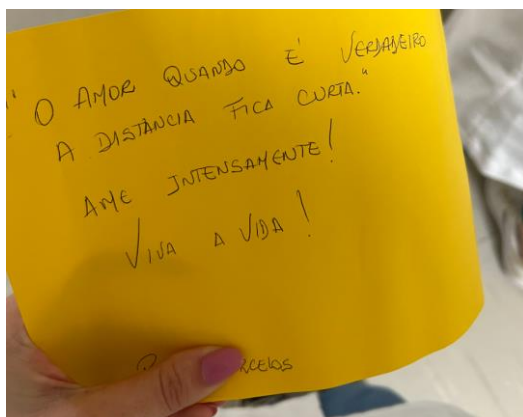 " O AMOR QUANDO E' VERDADEIRO
A DISTÂNCIA FICA CURTA."
AME INTENSAMENTE!
VIVA A VIDA!